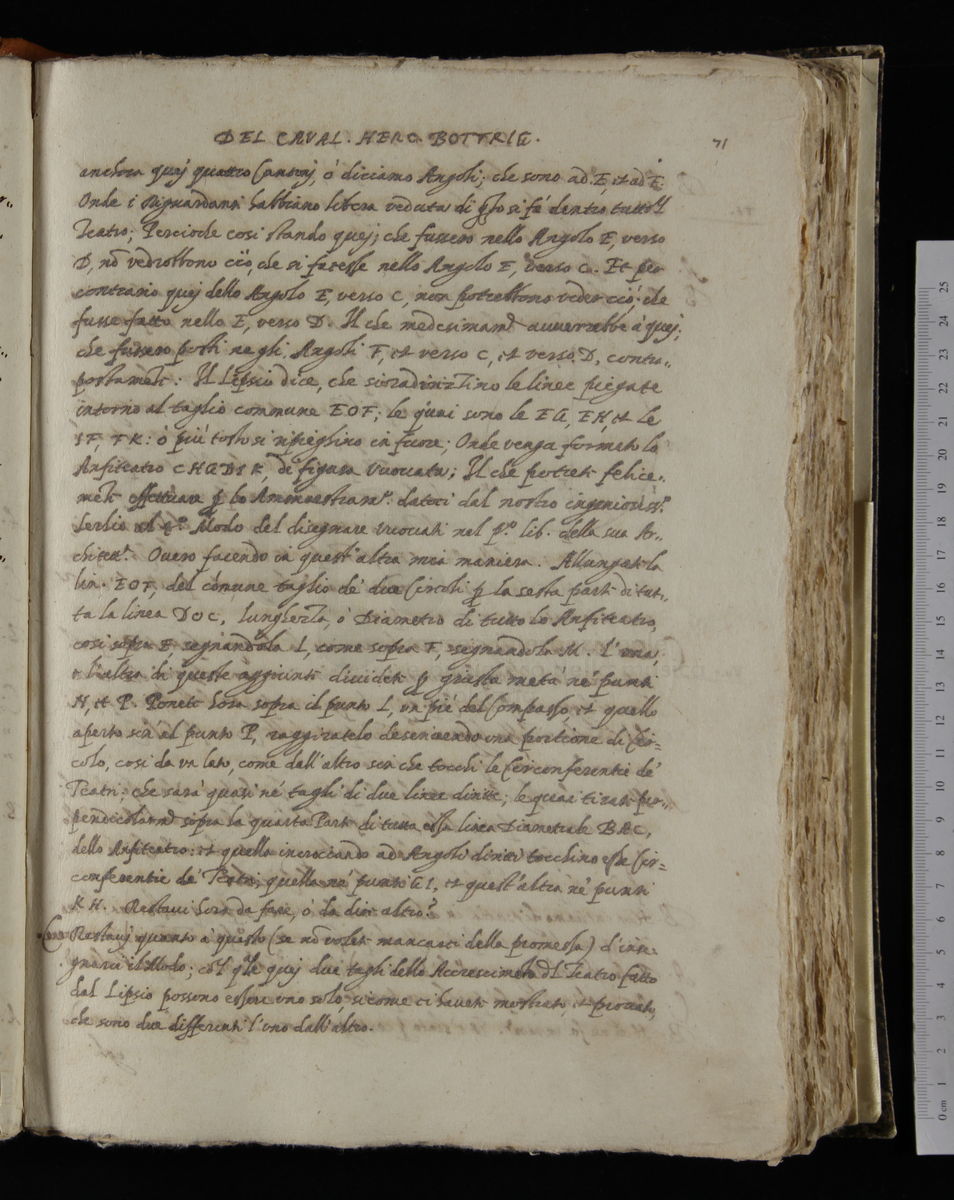 DEL CAVAL. HERC. BOTTRIG.
71
anchora quej quattro Cantonj, ò diciamo Angoli; che sono ad. E, et ad F.
Onde i Riguardanti habbiano libera veduta di si fà dentro tutto il
Teatro; Percioche cosi stando quej; che fussero nello Angolo E, verso
D, nō vedrebbono ciò, che si facesse nello Angolo E, verso C. Et per
contrario quej dello Angolo E, verso C, non potrebbono veder ciò; che
fusse fatto nello E, verso D. Il che medesimamẽ auuerrebbe à quej,
che fussero posti negli Angoli F, et verso C, et verso D, contra,,
postamẽte: Il Lipsio dice, che si le linee piegate
intorno al taglio commune EOF; le quai sono le EG, EH, et le
IF FK: ò più tosto si ripieghino in fuore; Onde venga formato lo
Anfiteatro CHGBIK, di figura vuouata; Il che potrete felice,,
mẽte effettuare lo Ammaestramᵗᵒ. datoci dal nostro ingeniosisˢ.ᵐᵒ
Serlio al Modo del disegnare vuouati nel pᵐᵒ lib. della sua Ar,,
chitettᵃ. Ouero facendo in quest'altra mia maniera. Allungate la
lin. EOF, del cōmune taglio de' due Circoli ꝑ la sesta parte di tut,,
ta la linea DOC, lunghezza, ò Diametro di tutto lo Anfiteatro,
cosi sopra E segnandola L, come sopra F, segnandola M. L'vna,
e l'altra di queste aggiunte diuidete ꝑ giusta metà ne' punti
N, et P. Ponete hora sopra il punto L, vn piè del Compasso, et quello
aperto sin al punto P, raggiratelo descriuendo vna portione di Cir=
colo, cosi da vn lato, come dall'altro sin che tocchi le Circonferentie de'
Teatri; che sarà quasi nè tagli di due linee diritte; le quai tirate per,,
pendicolarmẽ sopra la quarta Parte di tutta essa linea Diametrale BAC,
dello Anfiteatro: et quella incrociando ad Angoli diritti tocchino esse Cir=
conferentie de' Teatri; quella ne' punti G I, et quest'altra ne' punti
K H. Restaui hora da fare, ò da dire altro?
Restauj quanto à questo (se nō volete mancarci della promessa) d'inse,,
gnarci il Modo; col quej due tagli dello Accrescimẽto dL Teatro fatto
dal Lipsio possono essere vno solo, sicome ci hauete mostrato, et prouato,
che sono due differenti l'vno dall'altro.